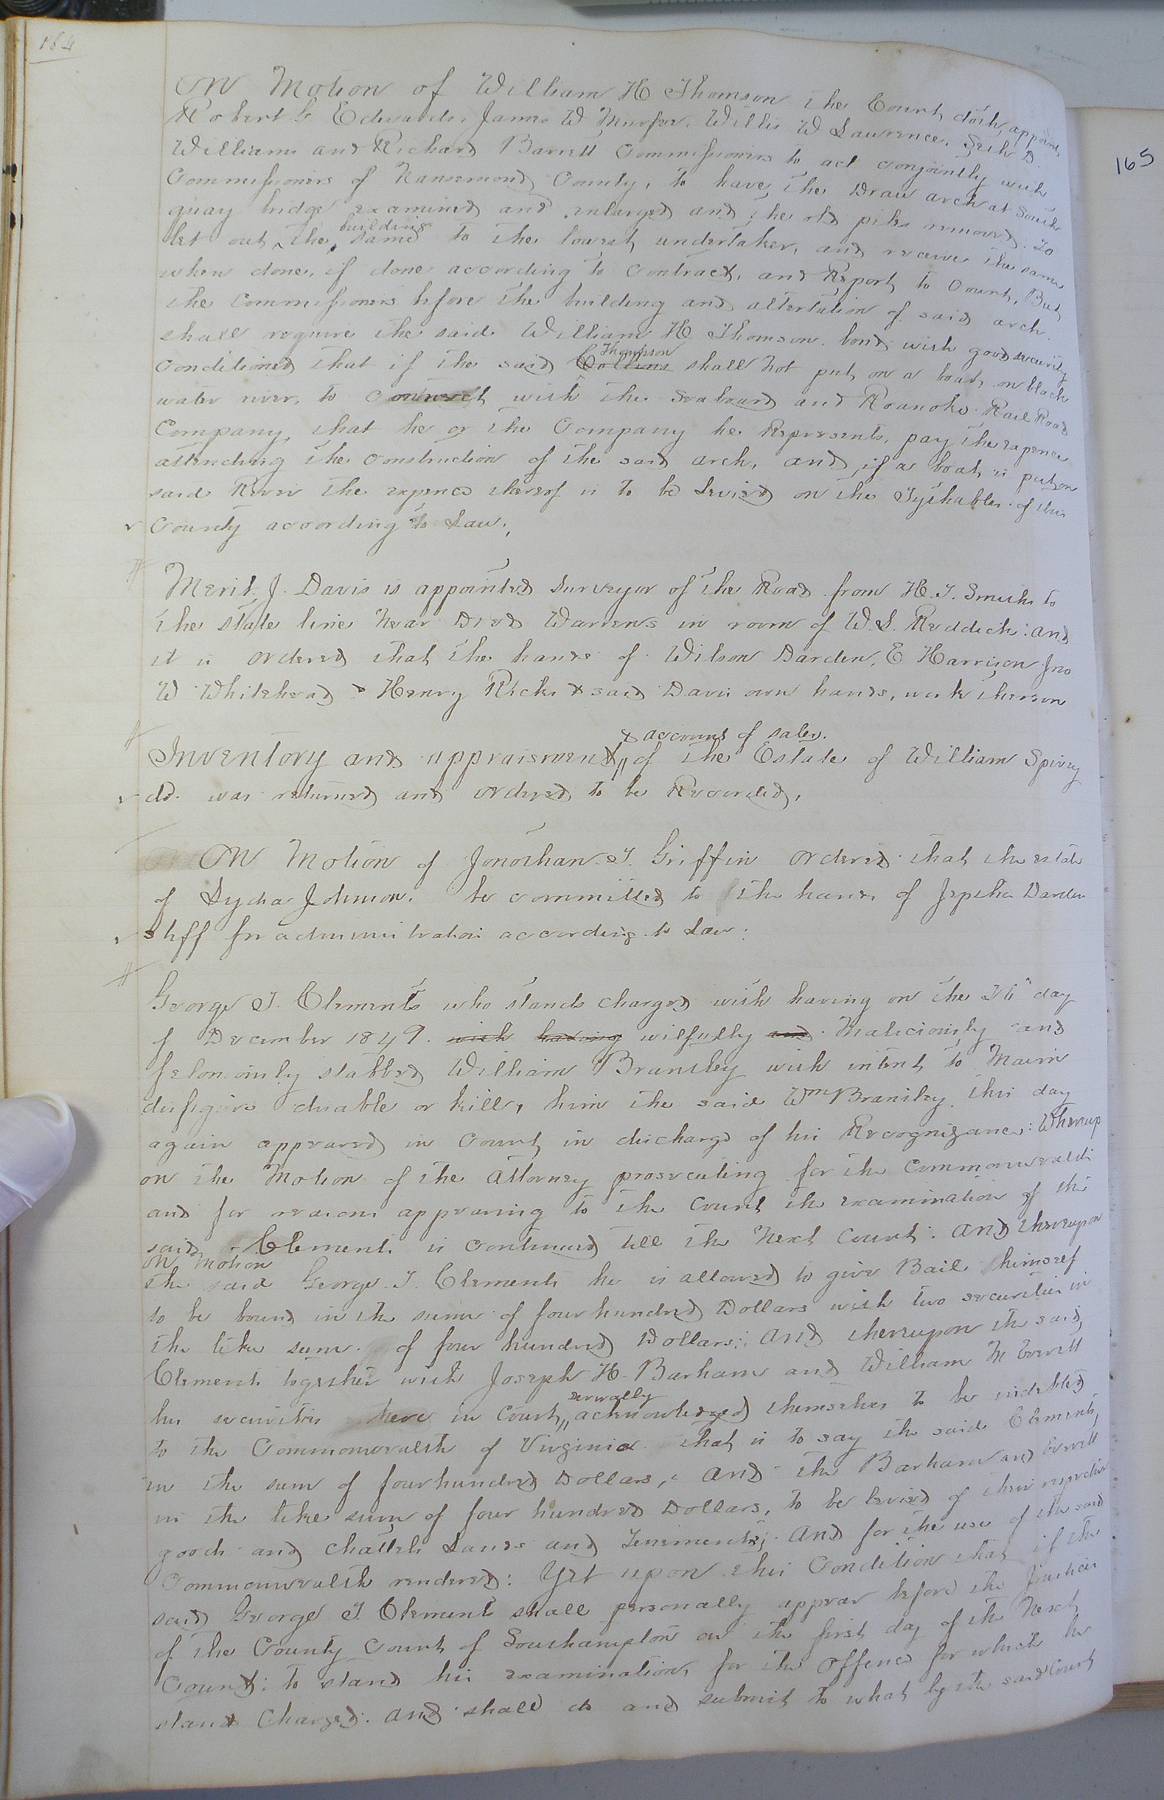 164
On Motion of William H Thomson the Court doth appoint
Robert G Edwards, James W Murfee, Willis W Lawrence, Seth D
Williams and Richard Barrett Commissioners to act conjointly with
Commissioners of Nansemond County, to have the Draw arch at South
quay bridge examined and enlarged and the old piles removed. To
let out the building same to the lowest undertaker, and receive the same
when done, if done according to Contract, and Report to Court, But
the Commissioners before the building and altertation of said arch
shall require the said William H Thomson bond with good security
Conditioned that if the said Collins Thompson shall not put on a boat on black
water river, to connect with the Seaboard and Roanoke Rail Road
Company, that he or the Company he Represents, pay the expence
attending the Construction of the said arch, and if a boat is put on
said River the expence thereof is to be Levied on the Tythables of this
County according to Law.
Merit J. Davis is appointed Surveyor of the Road from H. T. Smiths to
the State line Near Dred Warrens in room of W. S. Reddick: and
it is ordered that the hands of Wilson Darden, E Harrison Jno
W Whitehead & Henry Ricks & said Davis own hands, work thereon
Inventory and appraisement & account of sales. of the Estate of William Spivey
dd. was returned and ordered to be Recorded,
On Motion of Jonothan T. Griffin ordered that the estate
of Lydia Johnson. be committed to the hands of Jeptha Darden
Shff for administration according to Law:
George T. Clements who stands charged with having on the 26th day
of December 1849. with having wilfully and Maliciously and
feloniously stabbed William Brantley with intent to Maim
disfigure disable or kill, him the said Wm Brantley this day
again appeared in Court in discharge of his Recognizance: Whereup
on the Motion of the Attorney prosecuting for the Commonwealth
and for reasons appearing to the Court the examination of the
said Clements is continued till the Next Court: And thereupon
on Motion
the said George T. Clements he is allowed to give Bail himself
to be bound in the sum of four hundred Dollars with two securities in
the like sum of four hundred Dollars: And thereupon the said
Clements together with Joseph H. Barham and William M Everett
his securities here in Court, severally acknowledged themselves to be indebted
to the Commonwealth of Virginia that is to say the said Clements,
in the sum of four hundred Dollars, and the Barham and Everett
in the like sum of four hundred Dollars, to be levied of their respective
goods and Chattels Lands and Tenements; And for the use of the said
Commonwealth rendered: Yet upon this Condition that if the
said George T Clements shall personally appear before the Justices
of the County Court of Southampton on the first day of the Next
Court: to stand his examination, for the offence for which he
stands Charged. And shall do and submit to what by the said Court
165